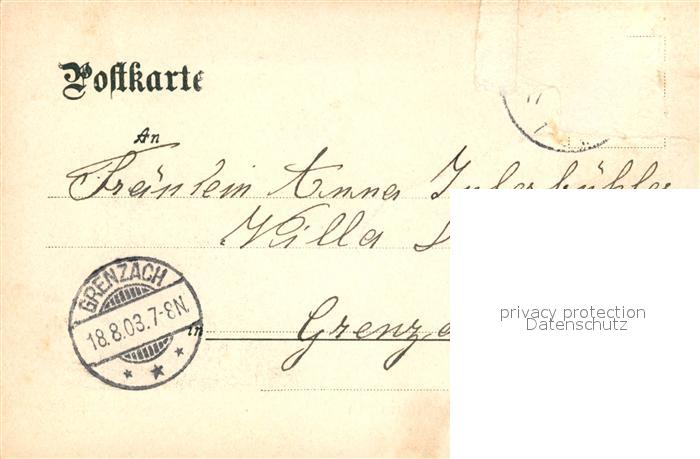 Postkarte
An
Fräulein Anna
Villa
GRENZACH
18.8.03.7-8N.
in
privacy protection
Datenschutz